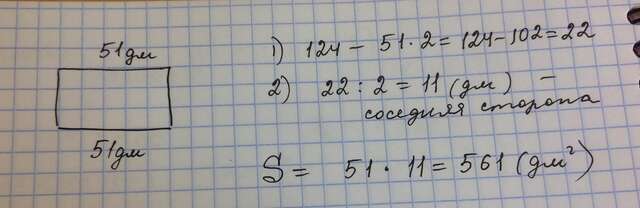 51дм
51дм
1) 124 - 51·2 = 124-102 = 22
2) 22 : 2 = 11 (дм) -
соседняя сторона
S = 51 · 11 = 561 (дм²)